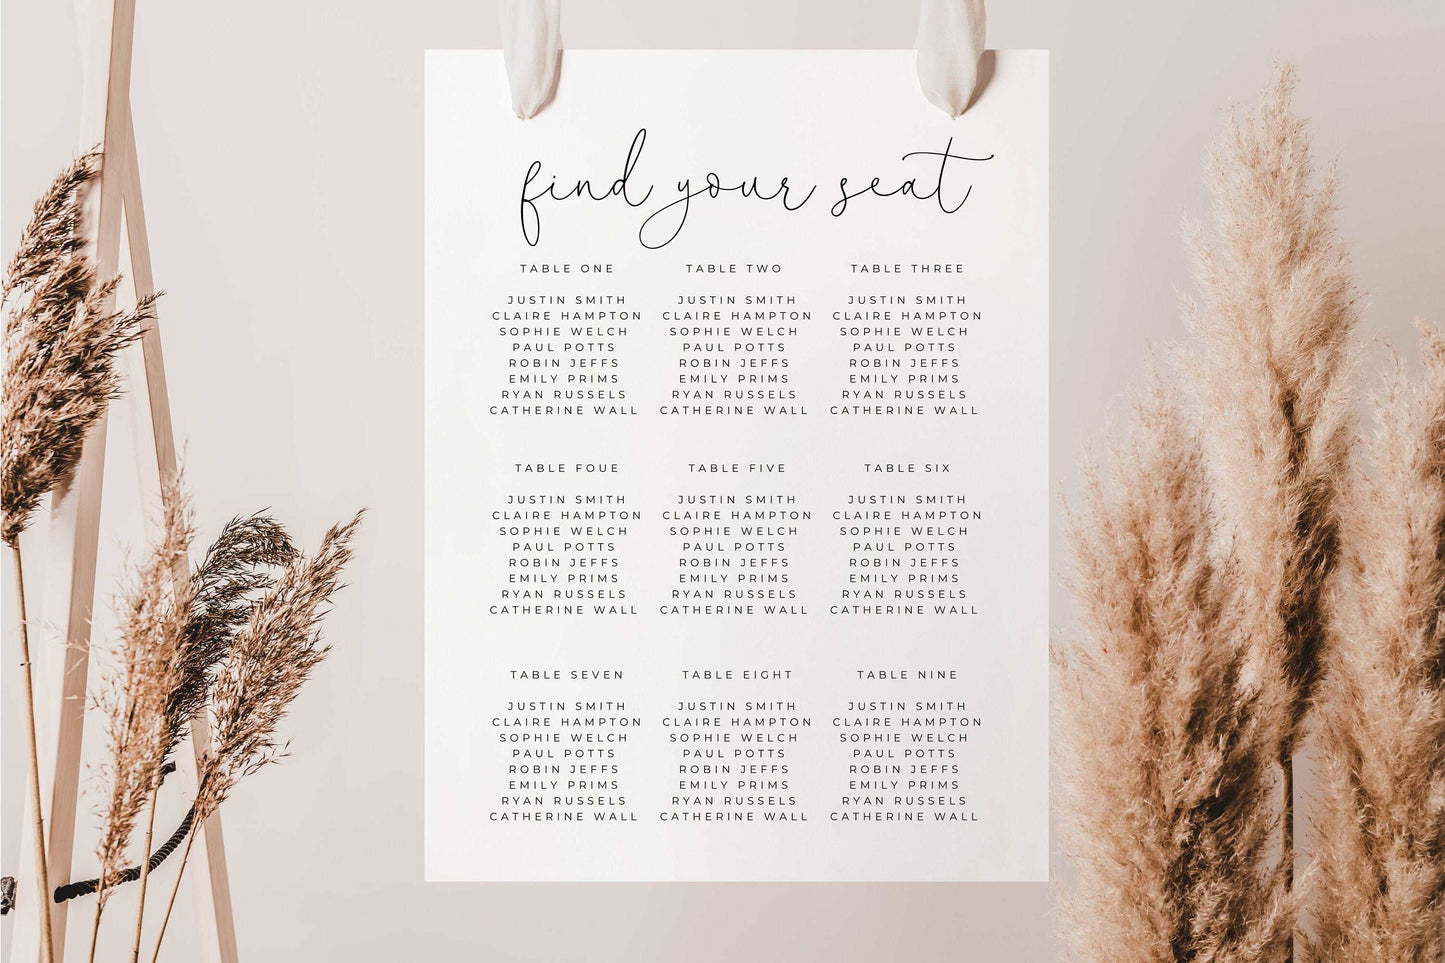 find your seat
TABLE ONE
JUSTIN SMITH
CLAIRE HAMPTON
SOPHIE WELCH
PAUL POTTS
ROBIN JEFFS
EMILY PRIMS
RYAN RUSSELS
CATHERINE WALL
TABLE TWO
JUSTIN SMITH
CLAIRE HAMPTON
SOPHIE WELCH
PAUL POTTS
ROBIN JEFFS
EMILY PRIMS
RYAN RUSSELS
CATHERINE WALL
TABLE THREE
JUSTIN SMITH
CLAIRE HAMPTON
SOPHIE WELCH
PAUL POTTS
ROBIN JEFFS
EMILY PRIMS
RYAN RUSSELS
CATHERINE WALL
TABLE FOUE
JUSTIN SMITH
CLAIRE HAMPTON
SOPHIE WELCH
PAUL POTTS
ROBIN JEFFS
EMILY PRIMS
RYAN RUSSELS
CATHERINE WALL
TABLE FIVE
JUSTIN SMITH
CLAIRE HAMPTON
SOPHIE WELCH
PAUL POTTS
ROBIN JEFFS
EMILY PRIMS
RYAN RUSSELS
CATHERINE WALL
TABLE SIX
JUSTIN SMITH
CLAIRE HAMPTON
SOPHIE WELCH
PAUL POTTS
ROBIN JEFFS
EMILY PRIMS
RYAN RUSSELS
CATHERINE WALL
TABLE SEVEN
JUSTIN SMITH
CLAIRE HAMPTON
SOPHIE WELCH
PAUL POTTS
ROBIN JEFFS
EMILY PRIMS
RYAN RUSSELS
CATHERINE WALL
TABLE EIGHT
JUSTIN SMITH
CLAIRE HAMPTON
SOPHIE WELCH
PAUL POTTS
ROBIN JEFFS
EMILY PRIMS
RYAN RUSSELS
CATHERINE WALL
TABLE NINE
JUSTIN SMITH
CLAIRE HAMPTON
SOPHIE WELCH
PAUL POTTS
ROBIN JEFFS
EMILY PRIMS
RYAN RUSSELS
CATHERINE WALL